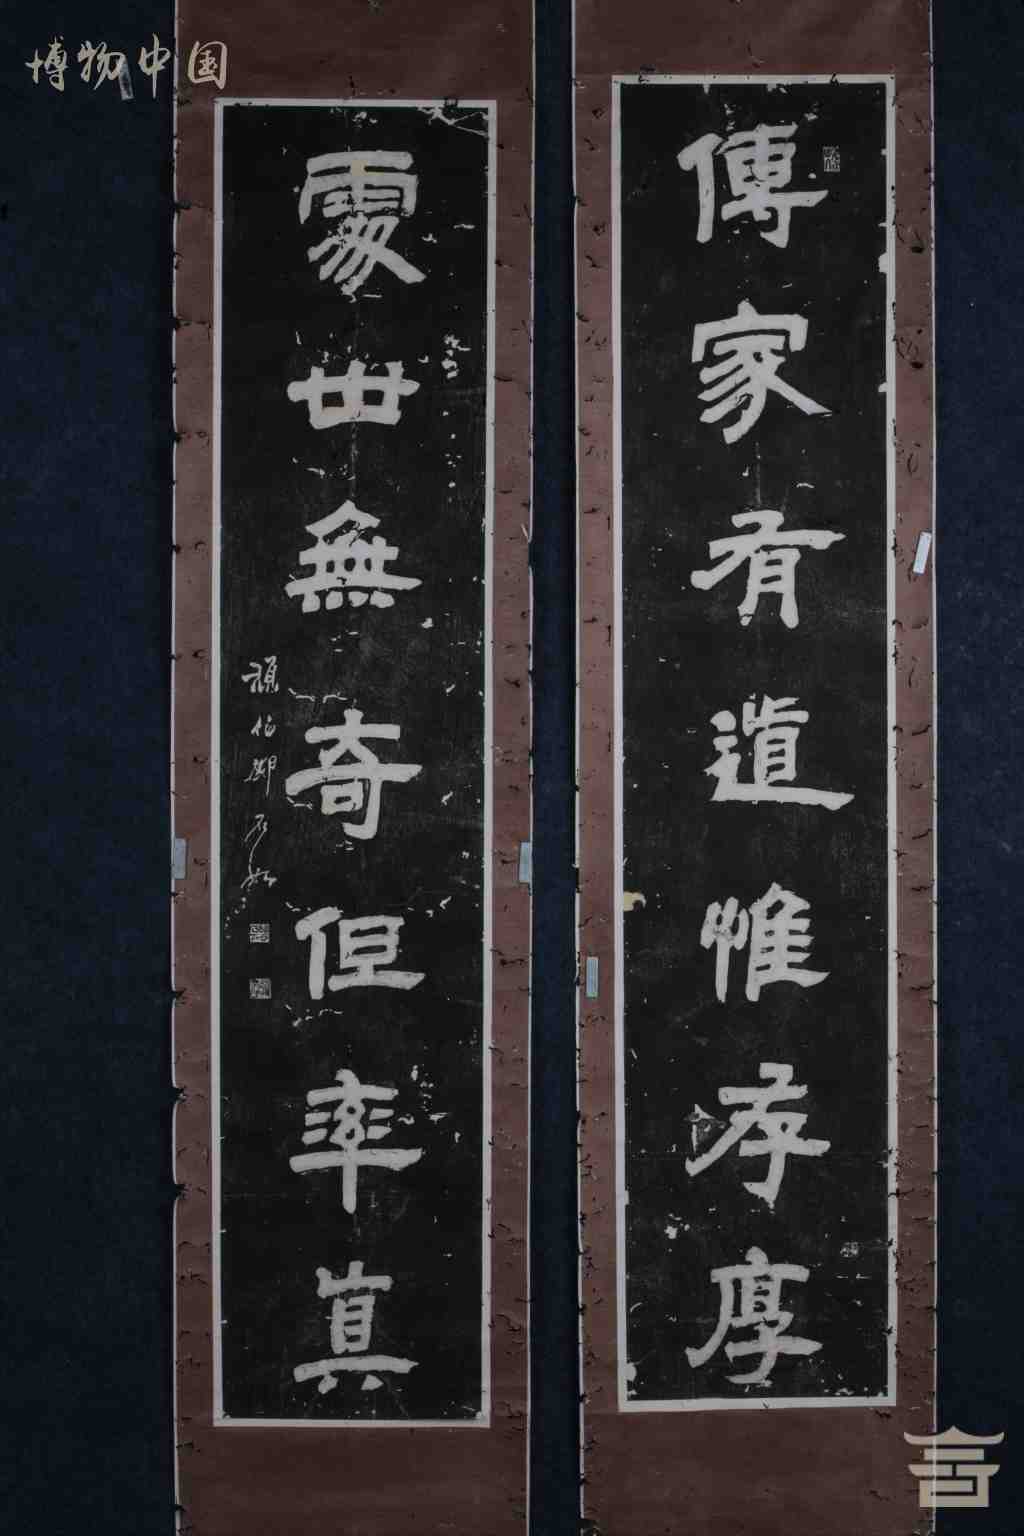 博物中国
傳家有道惟存厚
處世無奇但率真
頑伯鄧石如